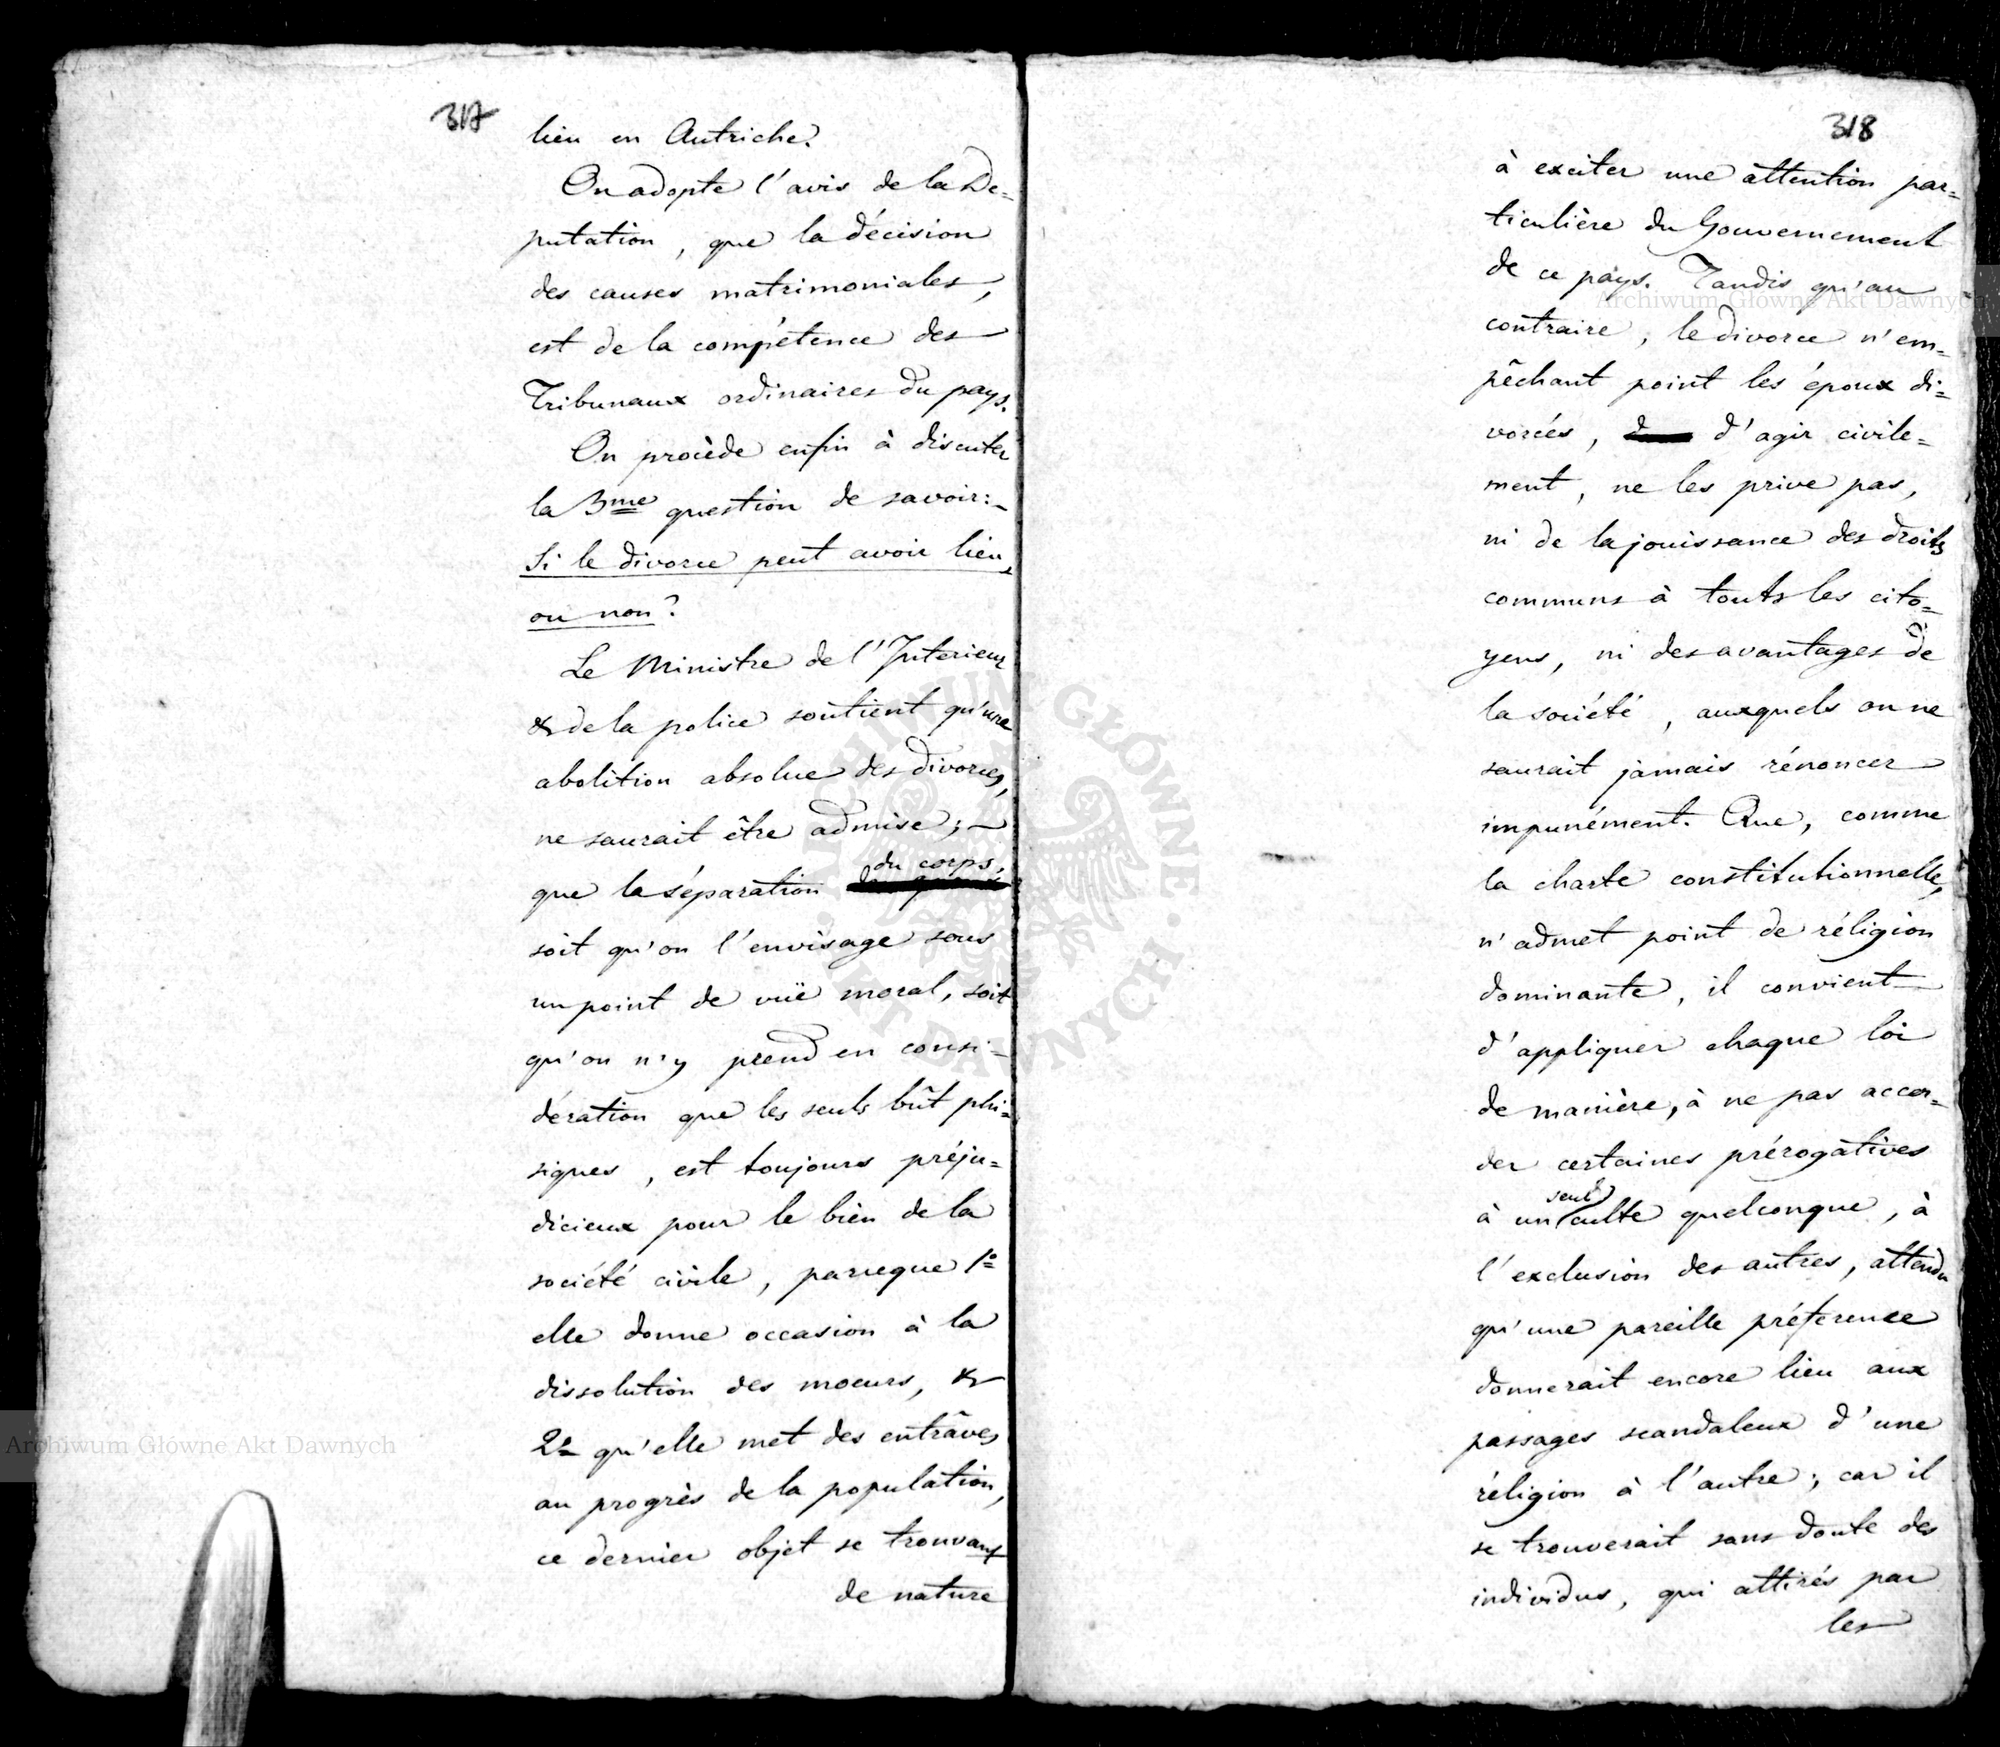 317
lieu en Autriche.
On adopte l'avis de la De-
putation, que la décision
des causes matrimoniales,
est de la compétence des
Tribunaux ordinaires du pays.
On procède enfin à discuter
la 3me question de savoir:-
Si le divorce peut avoir lieu,
ou non?
Le Ministre de l'Interieur
& de la police soutient qu'une
abolition absolue des divorces,
ne saurait être admise; -
du corps,
que la séparation
soit qu'on l'envisage sous
un point de vuë moral, soit
qu'on n'y prend en consi-
dération que les seuls bût phi-
siques, est toujours préju-
dicieux pour le bièn de la
société civile, parceque 1°
elle donne occasion à la
dissolution des moeurs, &
2° qu'elle met des entrâves
au progrès de la population,
ce dernier objet se trouvant
de nature
318
à exciter une attention par-
ticulière du Gouvernement
de ce pays. Tandis qu'au
contraire, le divorce n'em-
pêchant point les époux di-
vorcés, d'agir civile-
ment, ne les prive pas,
ni de la jouissance des droits
communs à touts les cito-
yens, ni des avantages de
la société, auxquels on ne
saurait jamais rénoncer
impunément. Que, comme
la charte constitutionnelle,
n'admet point de réligion
dominante, il convient
d'appliquer chaque loi
de manière, à ne pas accor-
der certaines prérogatives
seul
à un culte quelconque, à
l'exclusion des autres, attendu
qu'une pareille préference
donnerait encore lieu aux
passages scandaleux d'une
réligion à l'autre; car il
se trouverait sans doute des
individus, qui attirés par
les
Archiwum Główne Akt Dawnych
Archiwum Główne Akt Dawnych
ARCHIWUM GŁÓWNE AKT DAWNYCH